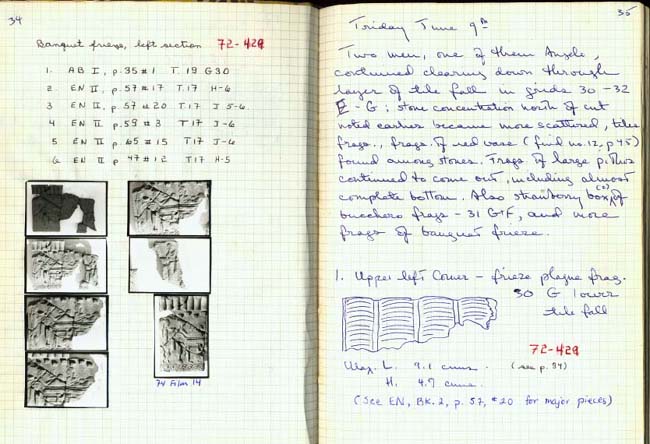 34
Banquet frieze, left section 72-429
1. AB I, p.35 #1 T.19 G30
2. EN II, p.57 #17 T.17 H-6
3 EN II, p.57 #20 T.17 J 5-6
4 EN II, p.59 #3 T.17 J-6
5 EN II p 65 #15 T.17 J-6
6 EN II p 47 #12 T.17 H-5
74 Film 14
35
Friday June 9th
Two men, one of them Angelo,
continued clearing down through
layer of tile fall in grids 30-32
E-G; stone concentration north of cut
noted earlier became more scattered, tile
frags., frags. of red vase (find no.12, p 45)
found among stones. Frags of large pithos
continued to come out, including almost
complete bottom. Also strawberry box(es) of
bucchero frags - 31 G+F, and more
frags of banquet frieze.
1. Upper left Corner - frieze plaque frag.
30 G lower
tile fall
72-429
Max. L. 9.1 cms. (see p. 34)
H. 4.7 cms.
(See EN, BK.2, p. 57, #20 for major pieces)